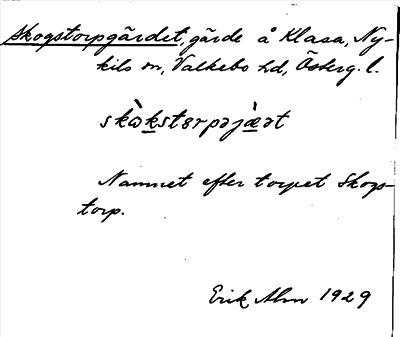 Skogstorpgärdet, gärde å Klasa, Ny-
kils sn, Valkebo hd, Österg. l.
skὼkstɷrpəjæ̀ət
Namnet efter torpet Skogs-
torp.
Erik Alm 1929